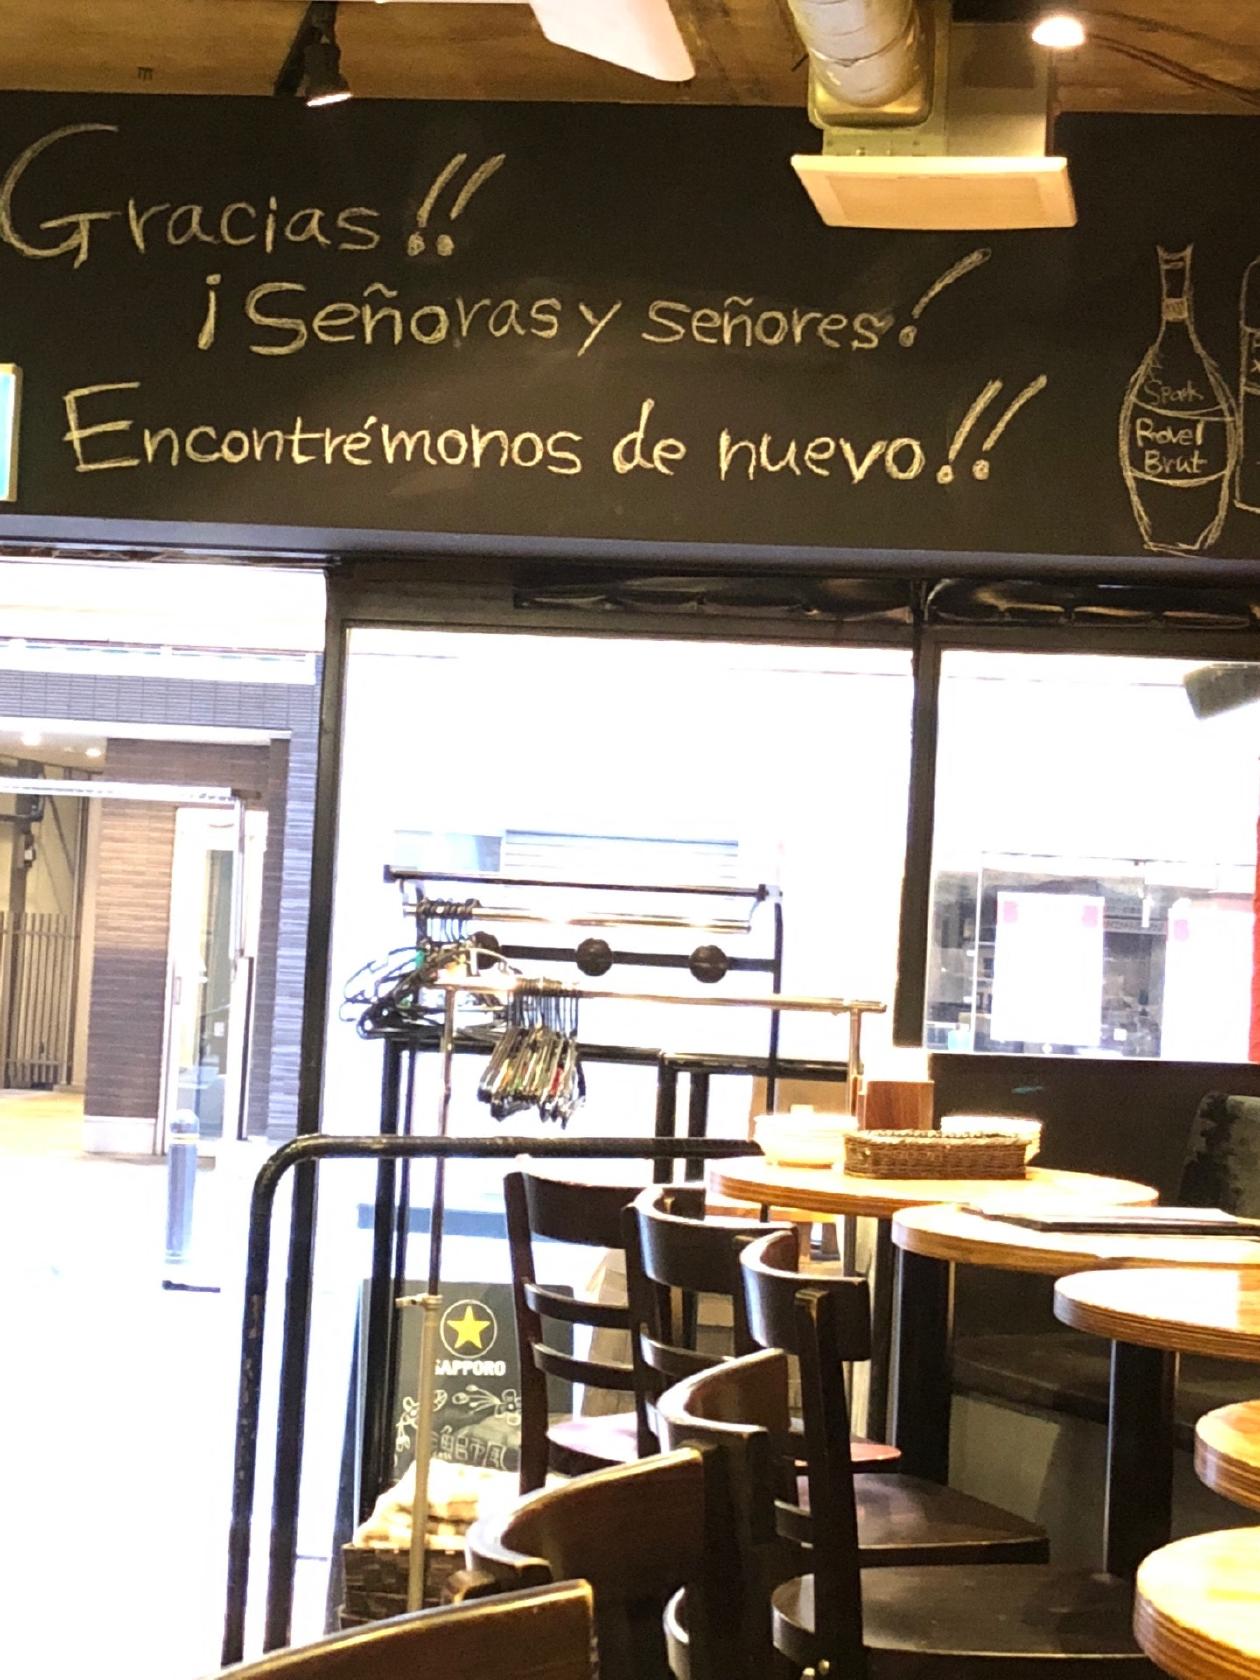 Gracias!!
¡Señoras y señores!
Encontrémonos de nuevo!!
Spark
Rovel
Brut
SAPPORO